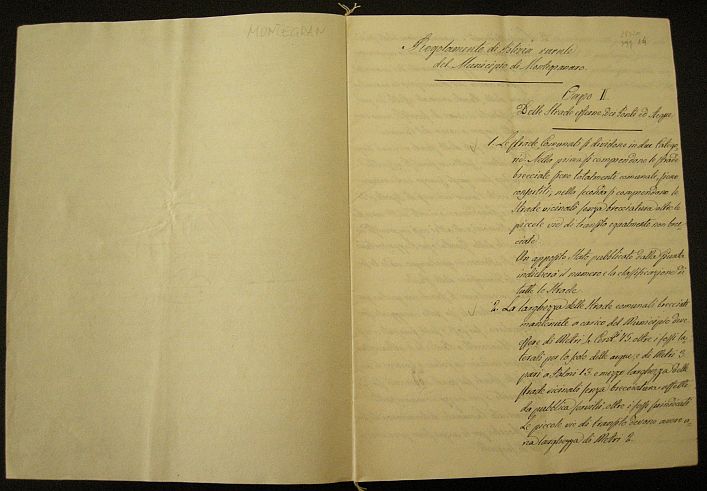 MONTEGRAN
Regolamento di Polizia rurale
del Municipio di Montegranaro
Capo I
Delle Strade esterne dei Ponti ed Acque
1. Le strade Comunali si dividono in due Catego
rie. Nella prima si comprendono le strade
brecciate siano totalmente comunali, siano
consortili; nella seconda si comprendono le
Strade vicinali senza brecciatura oltre le
piccole vie di transito egualmente non brec
ciate.
Un apposito Stato pubblicato dalla Giunta
indicherà il numero e la classificazione di
tutte le Strade.
2. La larghezza delle Strade comunali brecciate
mantenute a carico del Municipio deve
essere di Metri 4. Cent. 75. oltre i fossi la
terali per lo scolo delle acque; e di Metri 3.
pari a Palmi 13. e mezzo larghezza delle
strade vicinali senza brecciatura soggette
da pubblica servitù, oltre i fossi
Le piccole vie di transito devono avere u
na larghezza di Metri 2.